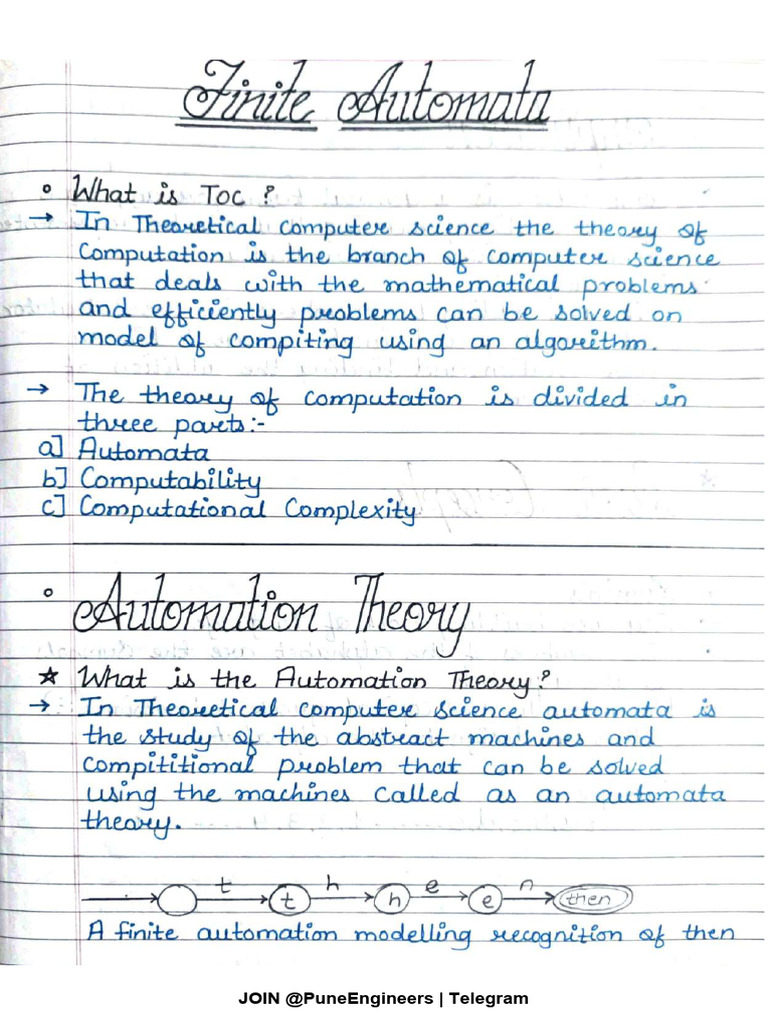 Finite Automata
° What is TOC ?
→ In Theoretical computer science the theory of
Computation is the branch of computer science
that deals with the mathematical problems
and efficiently problems can be solved on
model of compiting using an algorithm.
→ The theory of computation is divided in
three parts:-
a] Automata
b] Computability
c] Computational Complexity
° Automation Theory
☆ What is the Automation Theory?
→ In Theoretical computer science automata is
the study of the abstract machines and
compititional problem that can be solved
using the machines called as an automata
theory.
t h e n
t h e then
A finite automation modelling recognition of then
JOIN @PuneEngineers | Telegram